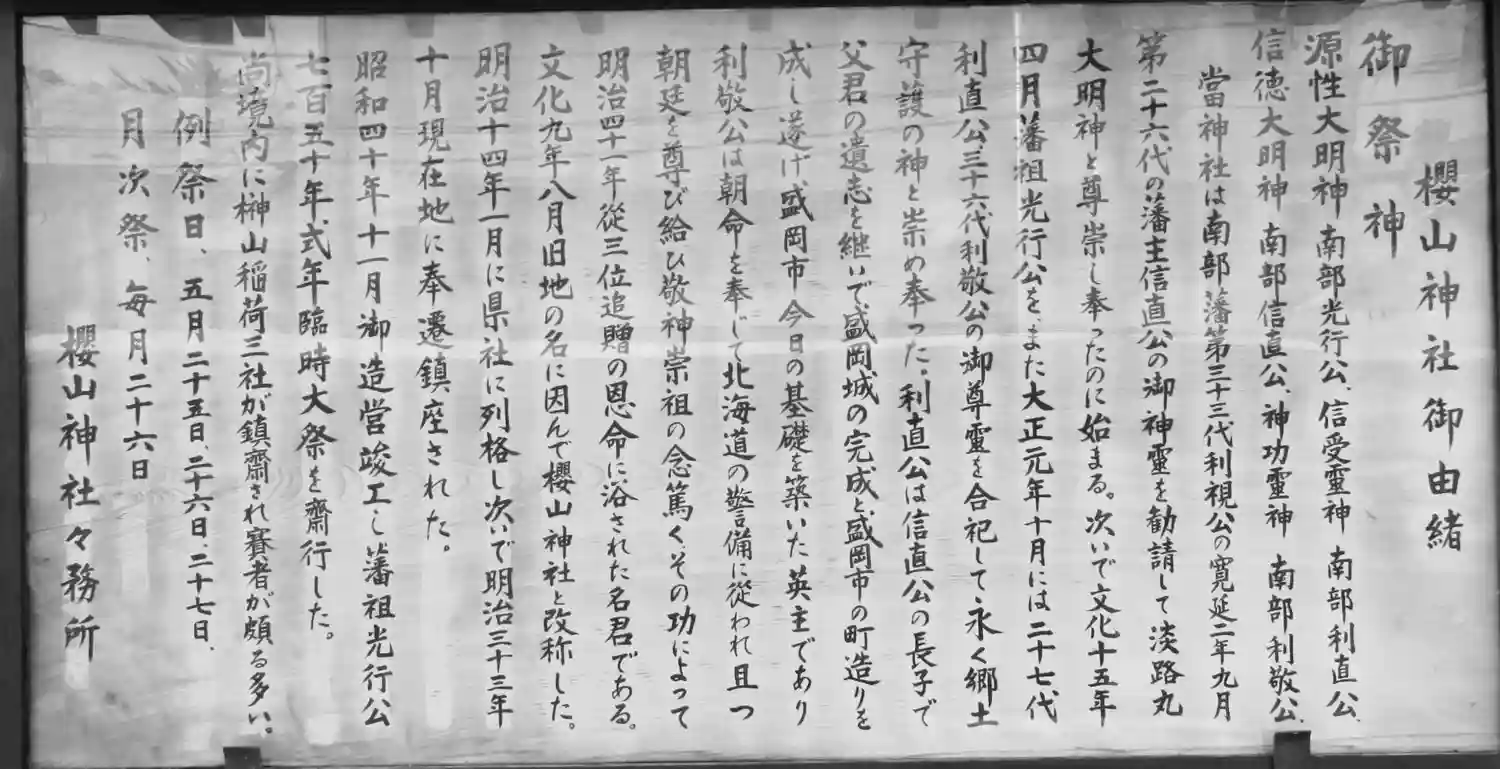 櫻山神社御由緒
御祭神
源性大明神 南部光行公、信受靈神 南部利直公、
信徳大明神 南部信直公、神功靈神 南部利敬公、
當神社は南部藩第三十三代利視公の寛延二年九月
第二十六代の藩主信直公の御神靈を勧請して淡路丸
大明神と尊崇し奉ったのに始まる。次いで文化十五年
四月藩祖光行公を、また大正元年十月には二十七代
利直公、三十六代利敬公の御尊靈を合祀して永く郷土
守護の神と崇め奉った。利直公は信直公の長子で
父君の遺志を継いで盛岡城の完成と盛岡市の町造りを
成し遂げ盛岡市今日の基礎を築いた英主であり
利敬公は朝命を奉じて北海道の警備に従われ且つ
朝廷を尊び給ひ敬神崇祖の念篤く、その功によって
明治四十一年從三位追贈の恩命に浴された名君である。
文化九年八月旧地の名に因んで櫻山神社と改称した。
明治十四年一月に県社に列格し次いで明治三十三年
十月現在地に奉遷鎮座された。
昭和四十年十一月御造営竣工し藩祖光行公
七百五十年、式年臨時大祭を齋行した。
尚境内に榊山稲荷三社が鎮齋され賽者が頗る多い。
例祭日、五月二十五日、二十六日、二十七日、
月次祭、毎月二十六日
櫻山神社々務所